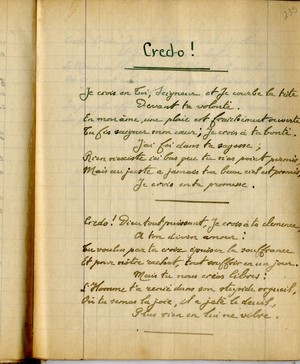 Credo!
Je crois en Toi, Seigneur et je courbe la tête
Devant ta volonté.
En mon âme, une plaie est
Tu fis saigner mon cœur; je crois à ta bonté.
J'ai foi dans ta sagesse;
Rien n'existe ici bas que tu n'aies point permis,
Mais au juste à jamais ton beau ciel est promis,
Je crois en ta promesse.
Credo! Dieu tout puissant, Je crois à ta clémence,
A ton divin amour!
Tu voulus par ta croix épuiser la souffrance
Et pour notre rachat, tout souffrir en un jour.
Mais tu nous créas libres;
L'Homme t'a renié dans son stupide orgueil,
Où tu semas la joie, il a jeté le deuil,
Plus rien en lui ne vibre.